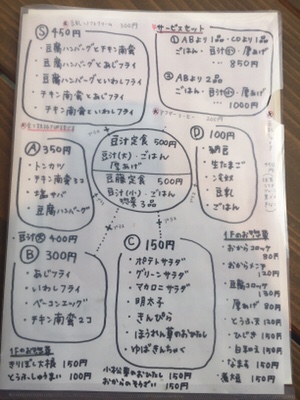 Ⓢ 450円
・豆腐ハンバーグとチキン南蛮
・豆腐ハンバーグとあじフライ
・豆腐ハンバーグといわしフライ
・チキン南蛮とあじフライ
・チキン南蛮といわしフライ
サービスセット
① ABより1品・CDより1品
ごはん・豆汁・厚あげ
850円
② ABより2品
ごはん・豆汁・厚あげ
1000円
Ⓐ 350円
・トンカツ
・チキン南蛮3コ
・塩サバ
・豆腐ハンバーグ
豆汁定食 500円
豆汁(大)・ごはん
厚あげ
豆藤定食 500円
豆汁(小)・ごはん
惣菜3品
Ⓓ 100円
・納豆
・生たまご
・冷奴
・豆乳
・ごはん
豆汁大 400円
Ⓑ 300円
・あじフライ
・いわしフライ
・ベーコンエッグ
・チキン南蛮2コ
Ⓒ 150円
・ポテトサラダ
・グリーンサラダ
・マカロニサラダ
・明太子
・きんぴら
・ほうれん草のおひたし
・ゆばきんちゃく
1Fのお惣菜
・おからコロッケ 80円
・おからメンチ 120円
・豆腐コロッケ 120円
・厚あげ 80円
・とうふ天 120円
・ひじき 150円
・白和え 150円
・なます 150円
1Fのお惣菜
きりぼし大根 150円
とうふしゅうまい 100円
小松菜のおひたし 150円
おからのそうざい 150円